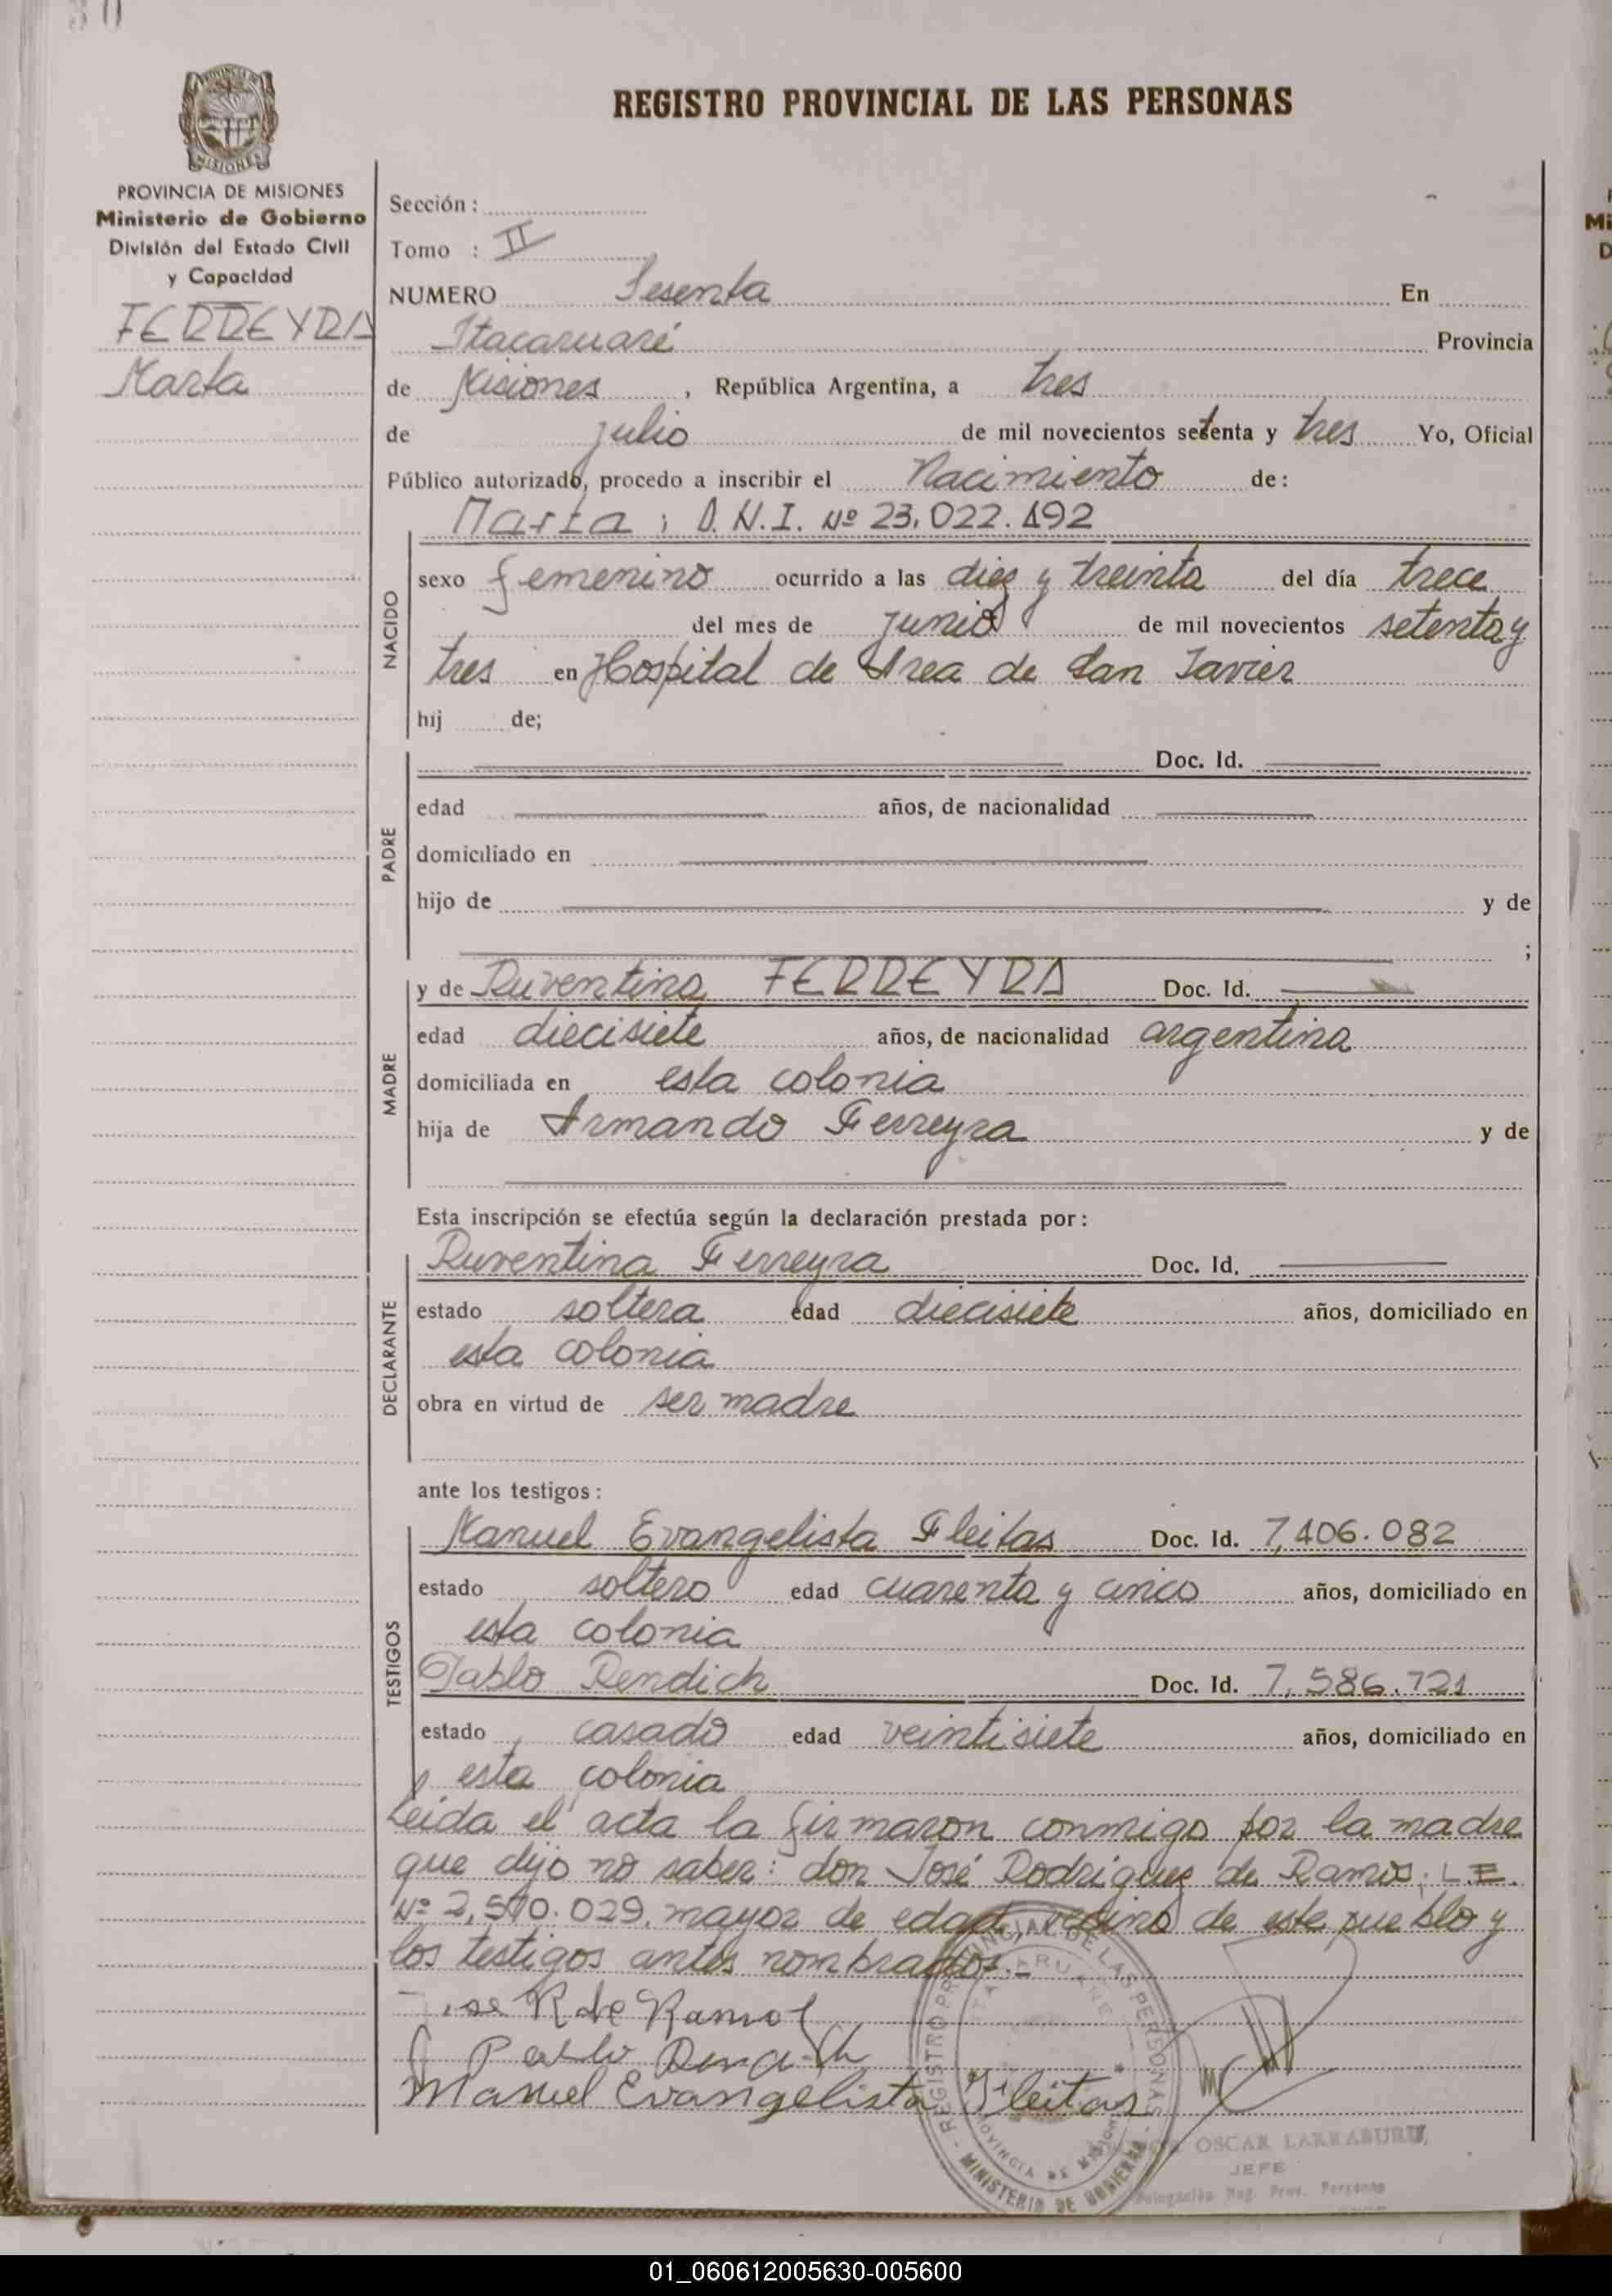 REGISTRO PROVINCIAL DE LAS PERSONAS
PROVINCIA DE MISIONES
Ministerio de Gobierno
División del Estado Civil
y Capacidad
FERREYRA
Marta
Sección :
Tomo : II
NUMERO Sesenta En
Itacaruaré Provincia
de Misiones , República Argentina, a tres
de julio de mil novecientos setenta y tres Yo, Oficial
Público autorizado, procedo a inscribir el Nacimiento de:
Marta; D.N.I. Nº 23.022.492
NACIDO
sexo femenino ocurrido a las diez y treinta del día trece
del mes de junio de mil novecientos setenta y
tres en Hospital de Area de San Javier
hij de;
PADRE
Doc. Id.
edad años, de nacionalidad
domiciliado en
hijo de y de
;
MADRE
y de Ruventina FERREYRA Doc. Id.
edad diecisiete años, de nacionalidad argentina
domiciliada en esta colonia
hija de Armando Ferreyra y de
Esta inscripción se efectúa según la declaración prestada por:
DECLARANTE
Ruventina Ferreyra Doc. Id.
estado soltera edad diecisiete años, domiciliado en
esta colonia
obra en virtud de ser madre
ante los testigos:
TESTIGOS
Manuel Evangelista Fleitas Doc. Id. 7,406.082
estado soltero edad cuarenta y cinco años, domiciliado en
esta colonia
Pablo Rendich Doc. Id. 7,586.721
estado casado edad veintisiete años, domiciliado en
esta colonia
Leida el acta la firmaron conmigo por la madre
que dijo no saber: don José Rodriguez de Ramos; L.E.
Nº 2,570.029, mayor de edad, vecino de este pueblo y
los testigos antes nombrados.-
R de Ramos
Pablo
Manuel Evangelista Fleitas
REGISTRO PROVINCIAL DE LAS PERSONAS
PROVINCIA DE MISIONES
MINISTERIO DE GOBIERNO
OSCAR LARRABURU
JEFE
Delegación Reg. Prov. Personas
01_060612005630-005600